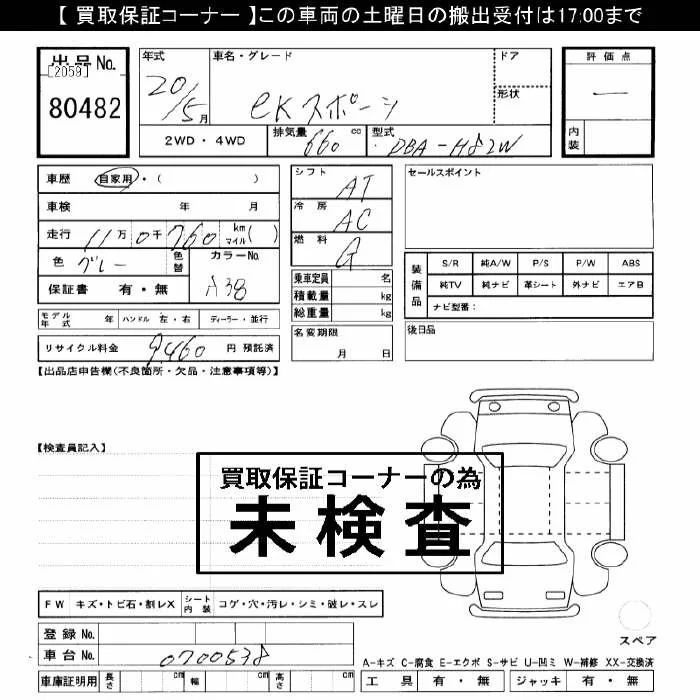 【 買取保証コーナー 】この車両の土曜日の搬出受付は17:00まで
出品No. [2059] 80482
年式 20/5月
車名・グレード eKスポーツ
ドア
形状
評価点 —
内装
2WD・4WD 排気量 660 cc 型式 DBA-H82W
車歴 自家用・( )
車検 年 月
走行 11万0千760 km マイル( )
色 グレー 色替 カラーNo. A38
保証書 有・無
シフト AT
冷房 AC
燃料 G
乗車定員 名
積載量 kg
総重量 kg
セールスポイント
装備品 S/R 純A/W P/S P/W ABS
純TV 純ナビ 革シート 外ナビ エアB
ナビ型番:
モデル年式 年 ハンドル 左・右 ディーラー・並行
名変期限 月 日
後日品
リサイクル料金 9,460 円 預託済
【出品店申告欄(不良箇所・欠品・注意事項等)】
【検査員記入】
買取保証コーナーの為
未検査
FW キズ・トビ石・割レX シート内装 コゲ・穴・汚レ・シミ・破レ・スレ
スペア
登録No.
車台No. 0700538
A-キズ C-腐食 E-エクボ S-サビ U-凹ミ W-補修 XX-交換済
車庫証明用 長さ cm 幅 cm 高さ cm
工具 有・無 ジャッキ 有・無